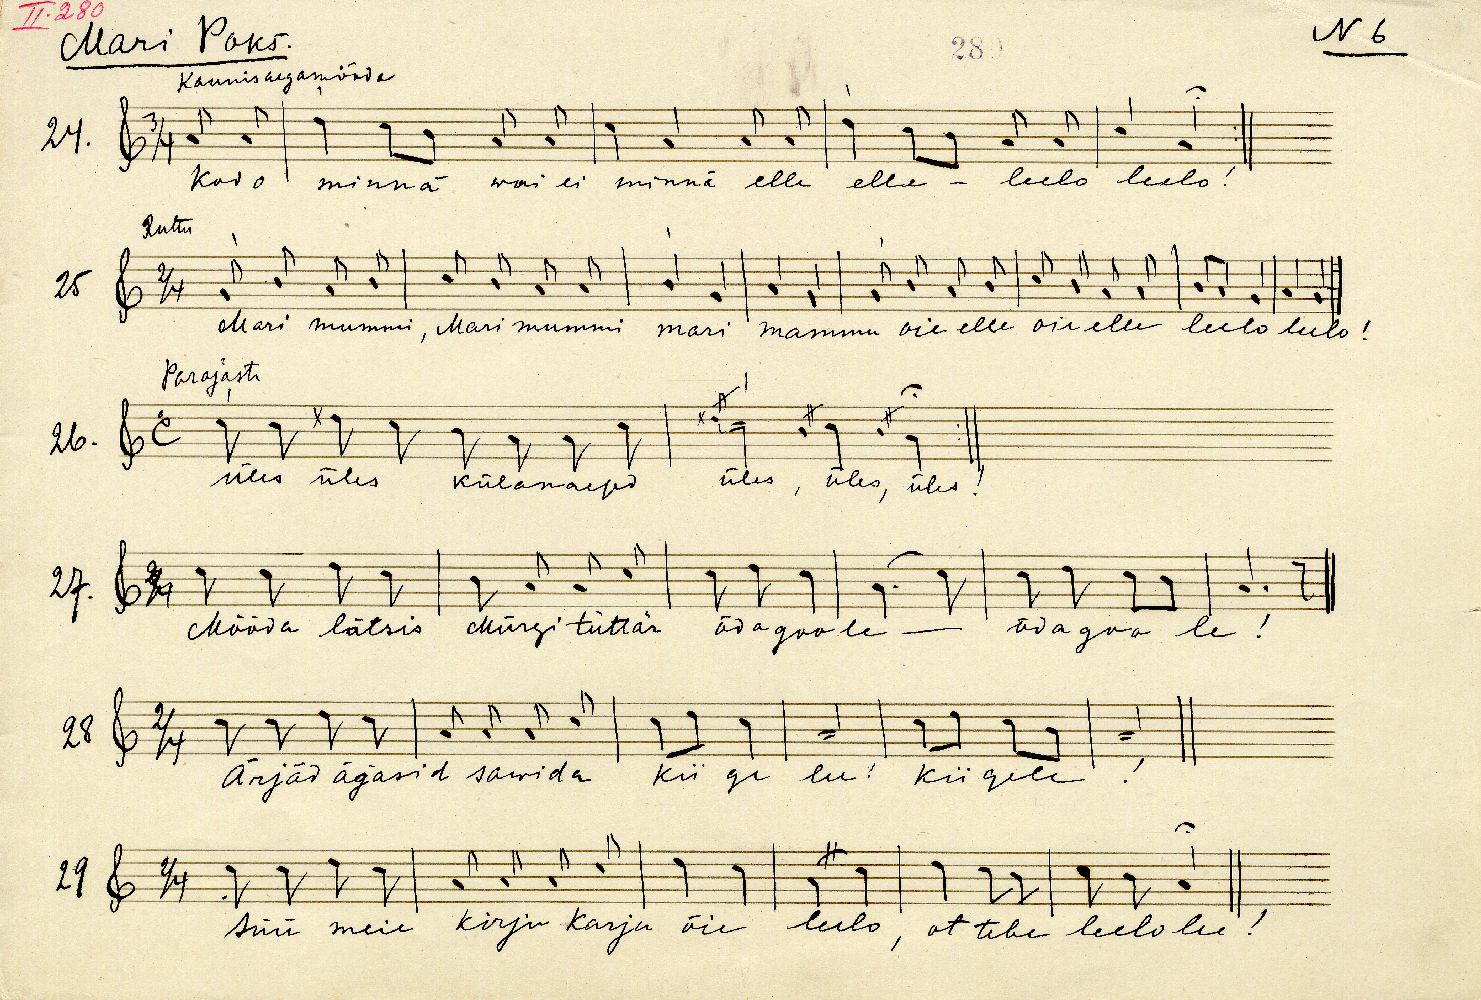 II. 280
Mari Poks.
280
N 6
Kaunisaegamööda
24.
3/4
Kodo minnä wai ei minnä elle elle – leelo leelo!
Ruttu
25
2/4
Mari mummi, Mari mummi mari mammu oie elle oie elle leelo leelo!
Parajaste
26.
C
üles üles külanaesed üles, üles, üles!
27.
Mööda lätsis Mürgi tüttär õdagoole — õdagoo le!
28
2/4
Ärjäd ägäsid sawida kii ge lee! kiigele!
29
2/4
Süü meie kirju karju õie leelo, ot tebe leelo lee!